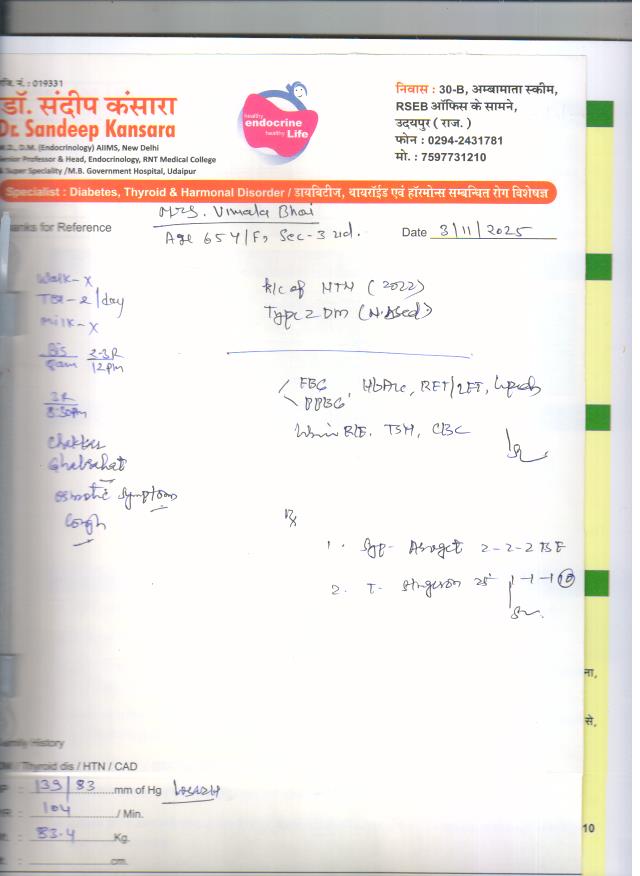 रजि. नं. : 019331
डॉ. संदीप कंसारा
Dr. Sandeep Kansara
M.D., D.M. (Endocrinology) AIIMS, New Delhi
Senior Professor & Head, Endocrinology, RNT Medical College
& Super Speciality /M.B. Government Hospital, Udaipur
healthy
endocrine
healthy Life
निवास : 30-B, अम्बामाता स्कीम,
RSEB ऑफिस के सामने,
उदयपुर ( राज. )
फोन : 0294-2431781
मो. : 7597731210
Specialist : Diabetes, Thyroid & Harmonal Disorder / डायबिटीज, थायरॉईड एवं हॉरमोन्स सम्बन्धित रोग विशेषज्ञ
Mrs. Vimala Bhai
Thanks for Reference
Age 65 Y/F, Sec-3 Ud.
Date 3/11/2025
Walk-x
Tea-2/day
Milk-x
Bis 2-3R
8am 12pm
3R
8:30pm
Chakkar
Ghabrahat
osmotic symptoms
Cough
K/c of HTN (2022)
Type 2 DM
FBG
PPBG, HbA1c, RFT/LFT, Lipids
Urine R/E, TSH, CBC
Rx
1. Syp- 2-2-2 TSF
2. T- 25 1-1-1 10
Family History
DM / Thyroid dis / HTN / CAD
BP : 139/83 mm of Hg
HR : 104 / Min.
Wt. : 83.4 Kg.
cm.
ना,
से,
10